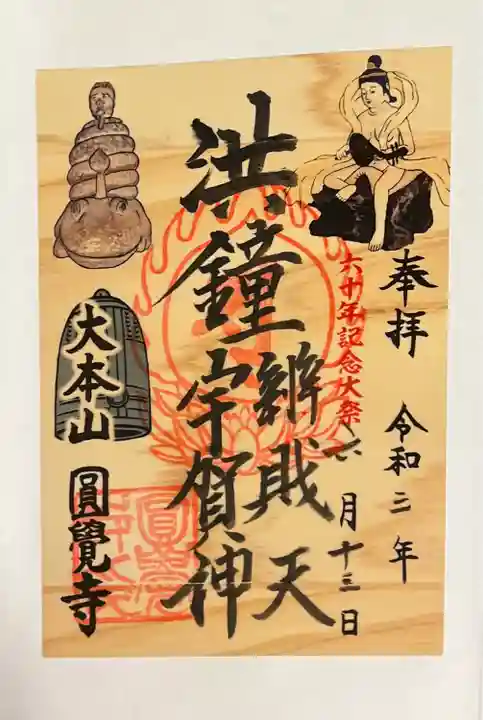 奉拝
令和三年
六十年記念大祭
六月十三日
洪鐘
辨財天
宇賀神
大本山
圓覺寺